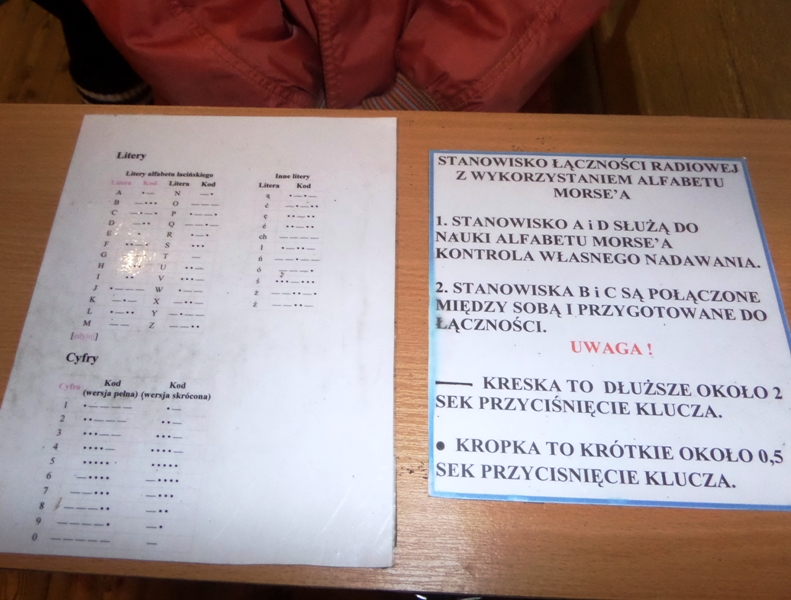 Litery
Litery alfabetu łacińskiego
Litera Kod Litera Kod
A •— N —•
B —••• O ———
C —•—• P •——•
D —•• Q ——•—
E R •—•
F S •••
G T —
H U ••—
I •• V •••—
J •——— W •——
K —•— X —••—
L •—•• Y —•——
M —— Z ——••
[edytuj]
Inne litery
Litera Kod
ą •—•—
ć —•—••
ę ••—••
é ••—••
ch ————
ł •—••—
ń ——•——
ó ———•
ś •••—•••
z ——••—•
ż ——••—
Cyfry
Cyfra Kod Kod
(wersja pełna) (wersja skrócona)
1 •———— •—
2 ••——— ••—
3 •••—— •••—
4 ••••— ••••—
5 ••••• •••••
6 —•••• —••••
7 ——••• —•••
8 ———•• —••
9 ————• —•
0 ————— —
STANOWISKO ŁĄCZNOŚCI RADIOWEJ
Z WYKORZYSTANIEM ALFABETU
MORSE’A
1. STANOWISKO A i D SŁUŻĄ DO
NAUKI ALFABETU MORSE’A
KONTROLA WŁASNEGO NADAWANIA.
2. STANOWISKA B i C SĄ POŁĄCZONE
MIĘDZY SOBĄ I PRZYGOTOWANE DO
ŁĄCZNOŚCI.
UWAGA !
— KRESKA TO DŁUŻSZE OKOŁO 2
SEK PRZYCIŚNIĘCIE KLUCZA.
● KROPKA TO KRÓTKIE OKOŁO 0,5
SEK PRZYCISNIĘCIE KLUCZA.